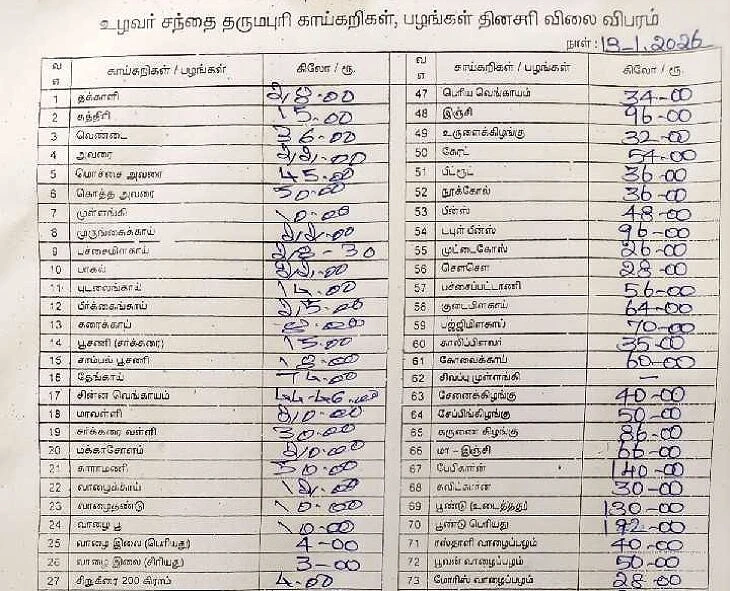 உழவர் சந்தை தருமபுரி காய்கறிகள், பழங்கள் தினசரி விலை விபரம்
நாள் : 19-1.2026
வ எ காய்கறிகள் / பழங்கள் கிலோ / ரூ.
1 தக்காளி
2 கத்திரி 15.00
3 வெண்டை 36-00
4 அவரை
5 மொச்சை அவரை 45.00
6 கொத்த அவரை 50.00
7 முள்ளங்கி 10-00
8 முருங்கைக்காய்
9 பச்சைமிளகாய்
10 பாகல்
11 புடலைங்காய் 14.00
12 பீர்க்கைங்காய் 25.00
13 சுரைக்காய்
14 பூசணி (சர்க்கரை) 15.00
15 சாம்பல் பூசணி
16 தேங்காய்
17 சின்ன வெங்காயம் 44-46.00
18 மாவள்ளி
19 சர்க்கரை வள்ளி 30.00
20 மக்காசோளம்
21 காராமணி 50.00
22 வாழைக்காய்
23 வாழைதண்டு 10.00
24 வாழை பூ 10.00
25 வாழை இலை (பெரியது) 4-00
26 வாழை இலை (சிறியது) 3-00
27 சிறுகீரை 200 கிராம் 4.00
வ எ காய்கறிகள் / பழங்கள் கிலோ / ரூ.
47 பெரிய வெங்காயம் 34-00
48 இஞ்சி 96-00
49 உருளைக்கிழங்கு 32-00
50 கேரட் 54-00
51 பீட்ரூட் 36-00
52 நூக்கோல் 36-00
53 பீன்ஸ் 48-00
54 டபுள் பீன்ஸ் 96-00
55 முட்டைகோஸ் 26-00
56 சௌசௌ 28-00
57 பச்சைப்பட்டாணி 56-00
58 குடைமிளகாய் 64-00
59 பஜ்ஜிமிளகாய் 70-00
60 காலிப்பிளவர் 35-00
61 கோவைக்காய் 60-00
62 சிவப்பு முள்ளங்கி —
63 சேனைக்கிழங்கு 40-00
64 சேப்பங்கிழங்கு 50-00
65 கருணை கிழங்கு 86-00
66 மா - இஞ்சி 66-00
67 பேபிகார்ன் 140-00
68 30-00
69 பூண்டு (உடைத்தது) 130-00
70 பூண்டு பெரியது 192-00
71 ரஸ்தாளி வாழைப்பழம் 40-00
72 பூவன் வாழைப்பழம் 50-00
73 மோரிஸ் வாழைப்பழம் 28-00